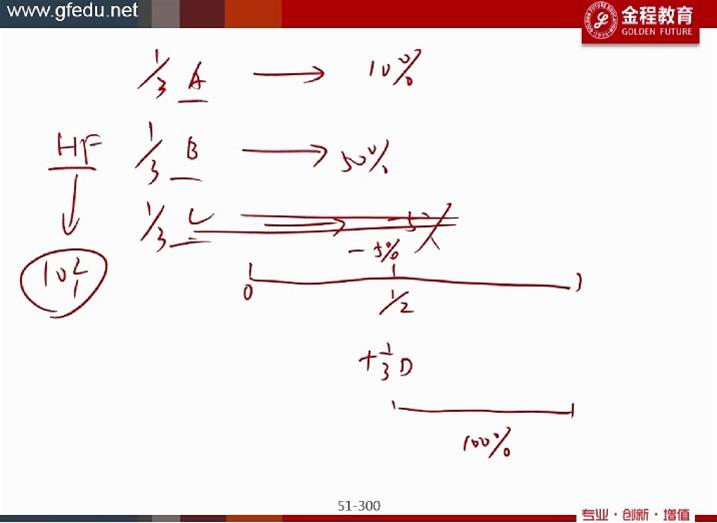 www.gfedu.net
金程教育
GOLDEN FUTURE
1/3 A → 10%
HF 1/3 B → 50%
1/3 C → -5%
-5%
0 1/2 1
+1/3 D
100%
51-300
专业·创新·增值